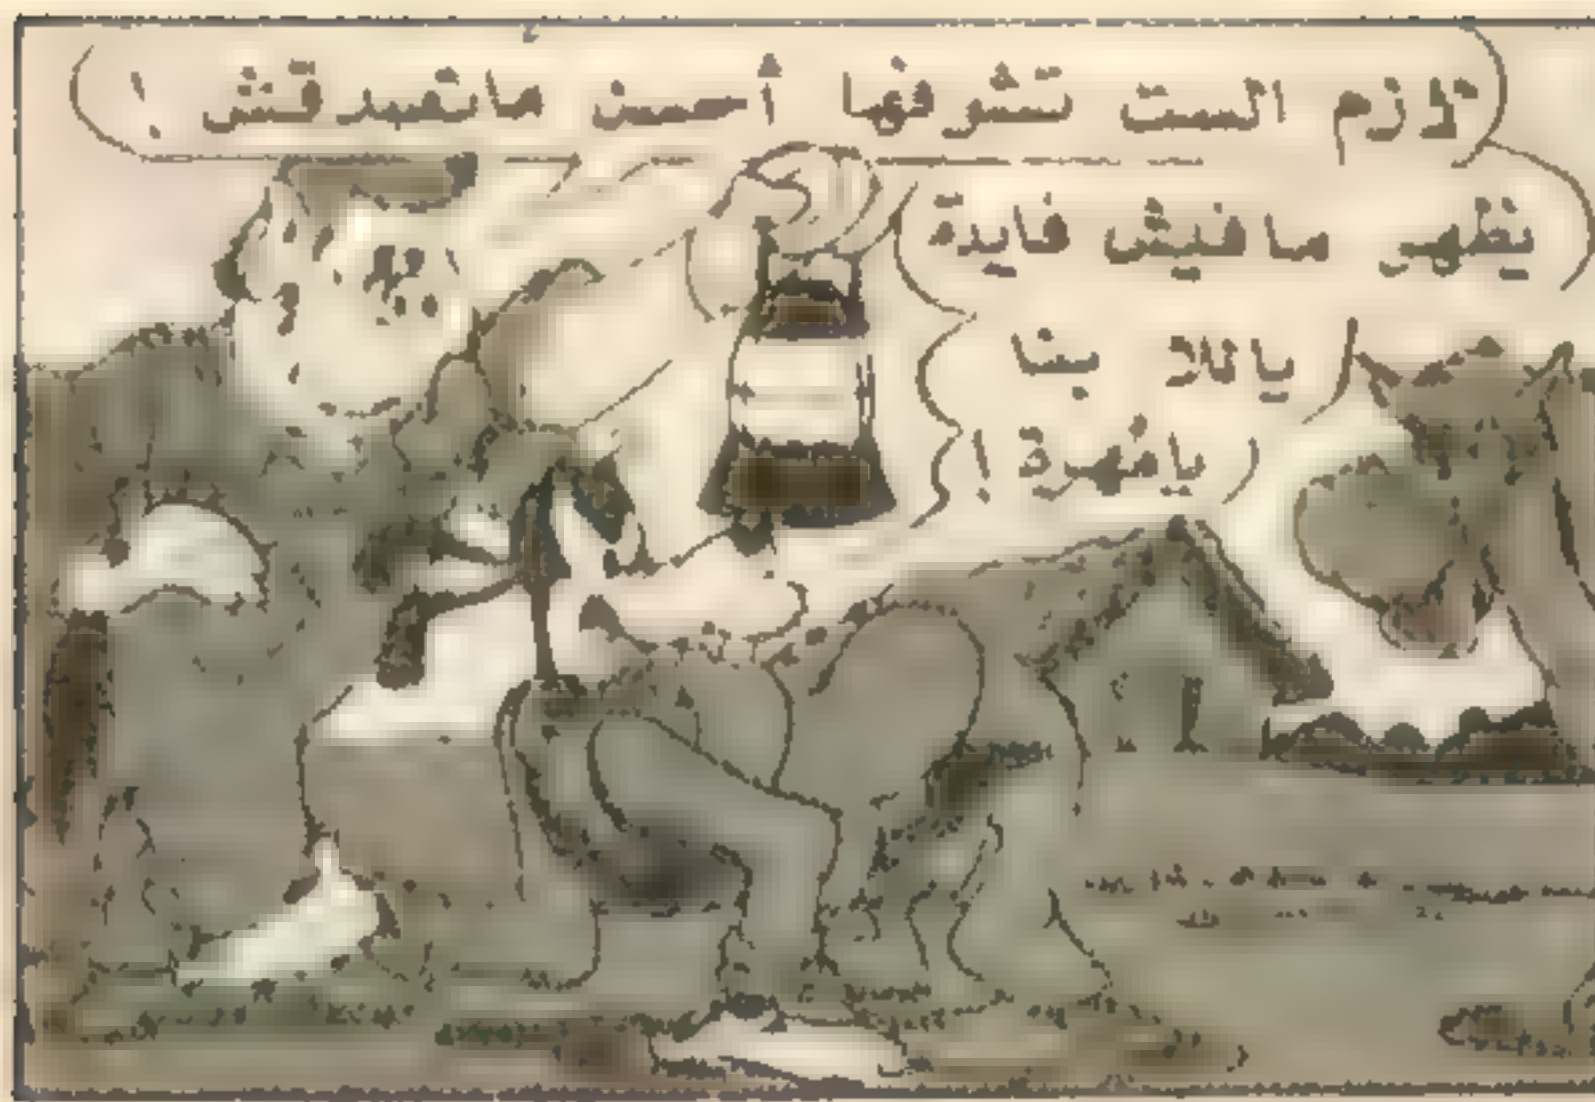 لازم الست تشوفها أحسن ماتصدقش !
يظهر مافيش فايدة
ياللا بنا
يامهرة !